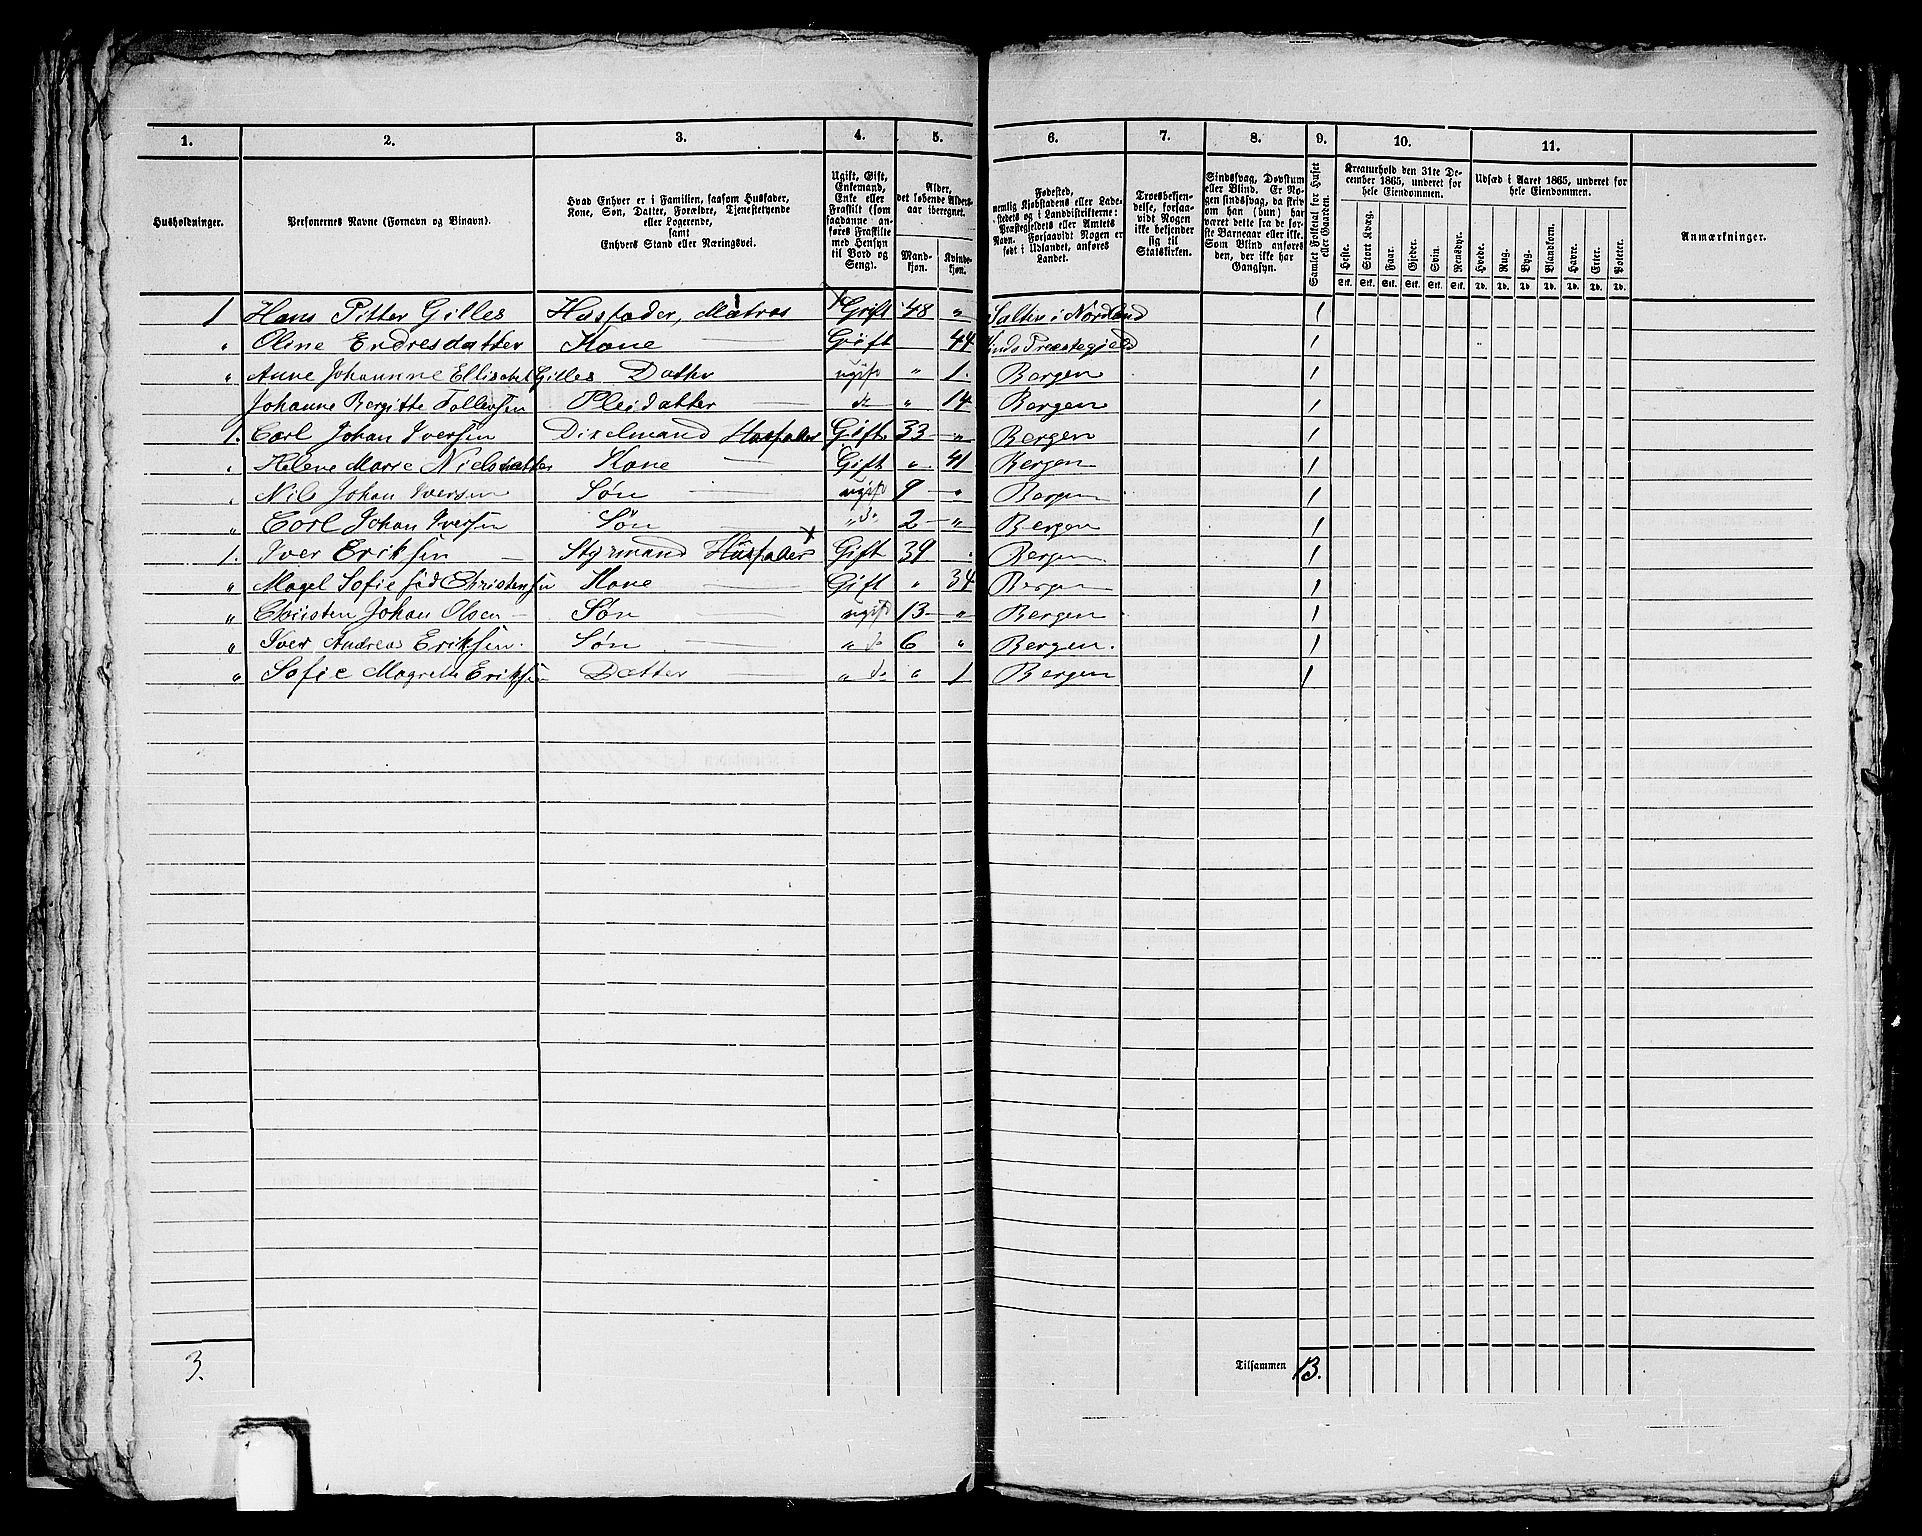 1. 2. 3. 4. 5. 6. 7. 8. 9. 10. 11.
Husholdninger.
Personernes Navne (Fornavn og Binavn).
Hvad Enhver er i Familien, saasom Husfader,
Kone, Søn, Datter, Forældre, Tjenestetyende
eller Logerende,
samt
Enhvers Stand eller Næringsvei.
Ugift, Gift,
Enkemand,
Enke eller
Fraskilt (som
saadanne anføres Fraskilte
med Hensyn
til Bord og
Seng).
Alder,
det løbende Alders-
aar iberegnet.
Mand-
kjøn.
Kvinde-
kjøn.
Fødested,
nemlig Kjøbstadens eller Lade-
stedets og i Landdistrikterne:
Præstegjeldets eller Amtets
Navn. Forsaavidt Nogen er
født i Udlandet, anføres
Landet.
Troesbekjen-
delse, forsaa-
vidt Nogen
ikke bekjender
sig til
Statskirken.
Sindssvag, Døvstum
eller Blind. Er No-
gen sindssvag, da skriv
om han (hun) har
været dette fra de før-
ste Barneaar eller ikke.
Som Blind anføres
den, der ikke har
Gangsyn.
Samlet Folketal for Huset
eller Gaarden.
Kreaturhold den 31te De-
cember 1865, underet for
hele Eiendommen.
Heste. Stort Kvæg. Faar. Gjeder. Svin. Rensdyr.
Stk. Stk. Stk. Stk. Stk. Stk.
Udsæd i Aaret 1865, underet for
hele Eiendommen.
Hvede. Rug. Byg. Blandkorn. Havre. Erter. Poteter.
Td. Td. Td. Td. Td. Td. Td.
Anmærkninger.
1 Hans Pitter Gilles Husfader, Matros Gift 48 " Salten i Nordland 1
" Oline Endresdatter Kone Gift 44 Kinds Præstegjeld 1
" Anne Johannne Ellisebet Gilles Datter ugift " 1 Bergen 1
Johanne Bergitte Tollevsen Pleidatter do " 14 Bergen 1
1. Carl Johan Iversen Dixelmand Husfader Gift 33 " Bergen 1
" Helene Marie Nielsdatter Kone Gift " 41 Bergen 1
" Nils Johan Iversen Søn ugift 9 " Bergen 1
" Carl Johan Iversen Søn " do 2 " Bergen 1
1. Iver Eriksen Styrmand Husfader Gift 39 Bergen 1
" Magel Sofie fød Christensen Kone Gift " 34 Bergen 1
" Christen Johan Olsen Søn ugift 13 " Bergen 1
" Iver Andreas Eriksen Søn " do 6 " Bergen. 1
" Sofie Magrete Eriksen Datter " do " 1 Bergen 1
3. Tilsammen 13.